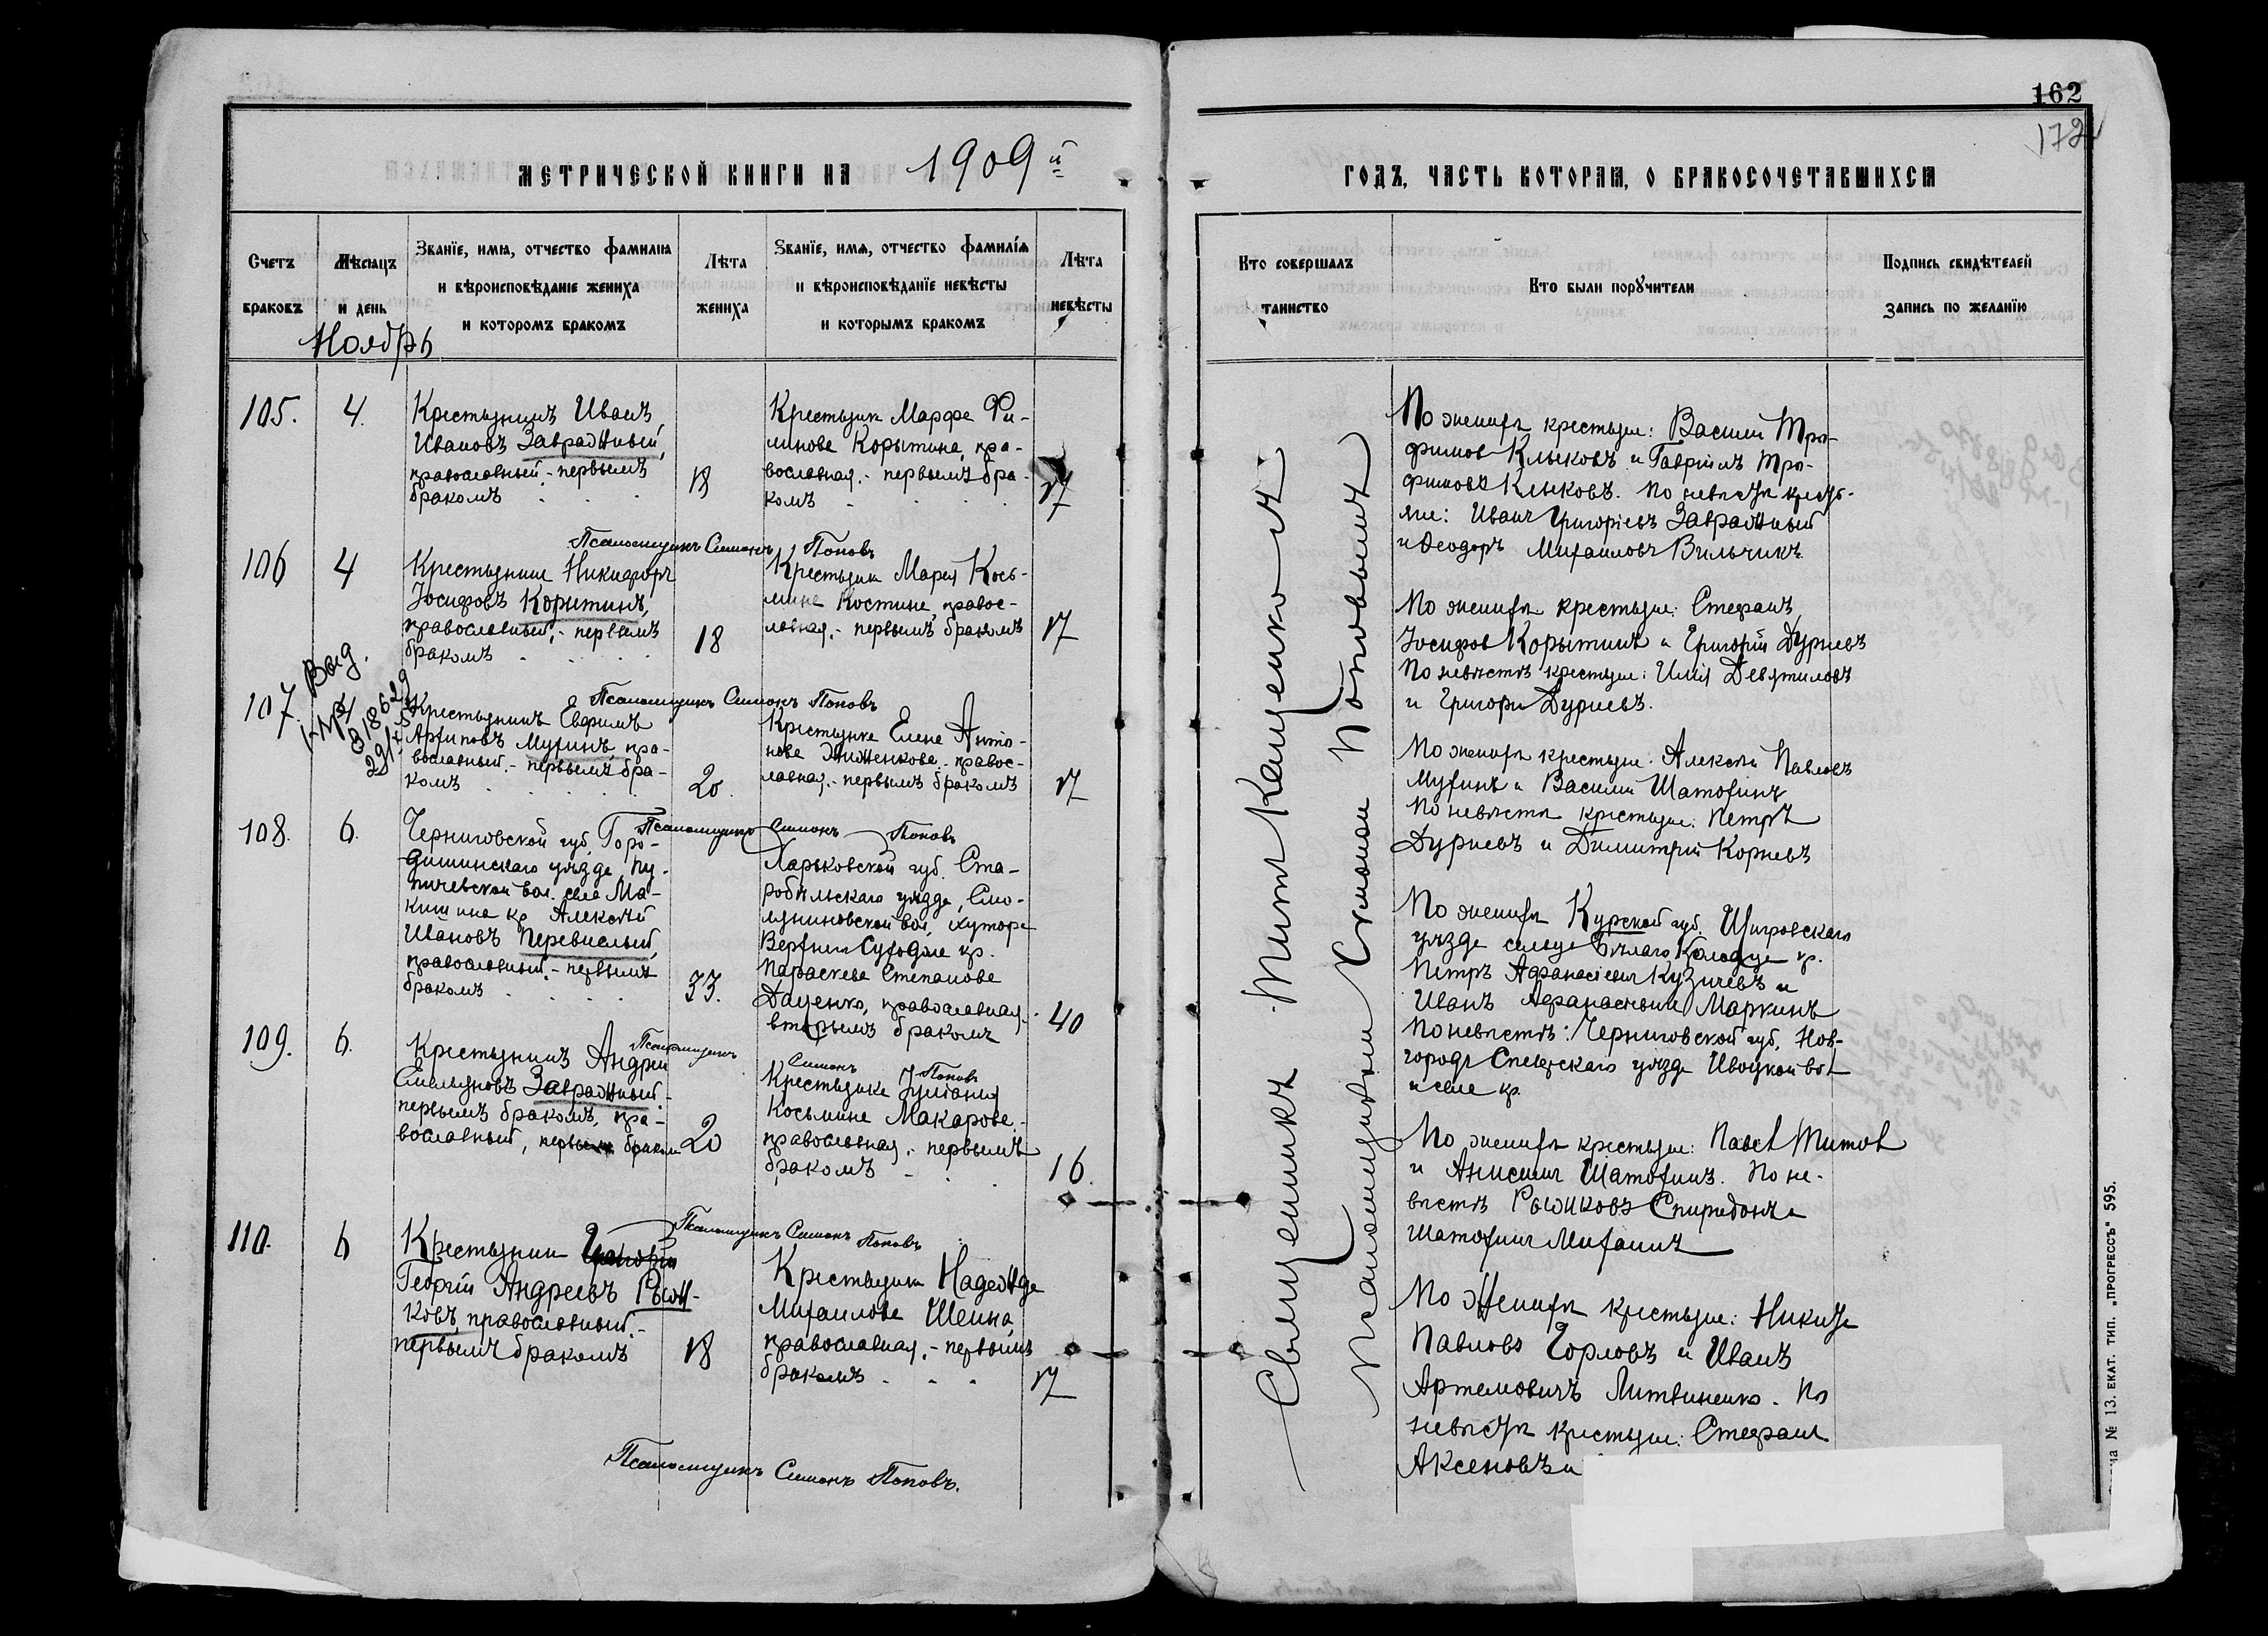 162
172
МЕТРИЧЕСКОЙ КНИГИ НА 1909 й
ГОДЪ, ЧАСТЬ КОТОРАЯ, О БРАКОСОЧЕТАВШИХСЯ
Счетъ
браковъ
Мѣсяцъ
и день
Званїе, имя, отчество фамилїя
и вѣроисповѣданіе жениха
и которомъ бракомъ
Лѣта
жениха
Званїе, имя, отчество фамилїя
и вѣроисповѣданїе невѣсты
и которымъ бракомъ
Лѣта
невѣсты
Кто совершалъ
таинство
Кто были порꙋчители
Подпись свидѣтелей
запись по желанїю
Ноябрь
105.
4.
Крестьянинъ Иванъ
Ивановъ Завражный,
православный.- первымъ
бракомъ
18
Крестьянка Марфа Фи-
линова Корытина, пра-
вославная.- первымъ бра-
комъ
17
По жениху крестьяне: Василий Тро-
фимов Клыковъ и Гавріилъ Тро-
фимовъ Клыковъ. По невѣсте кресть-
яне: Иванъ Григоріевъ Завражный
и Феодоръ Михаиловъ Вильчикъ
Псаломщикъ Симонъ Поповъ
106
4
Крестьянин Никифоръ
Іосифовъ Корытинъ,
православный,- первымъ
бракомъ
18
Крестьянка Мария Кось-
мина Костина, правос-
лавная.- первымъ бракомъ
17
По жениху крестьяне: Стефанъ
Іосифов Корытинъ и Григорій Дурневъ
По невѣстѣ крестьяне: Илія Девятиловъ
и Григорий Дурневъ.
Псаломщикъ Симонъ Поповъ
107.
Выд.
318629
Крестьянинъ Ефримъ
Архиповъ Мухинъ, пра-
вославный.- первымъ бра-
комъ
20.
Крестьянка Елена Анто-
нова Жиженкова.- правос-
лавная.- первымъ бракомъ
17
По жениху крестьяне: Алексѣй Павловъ
Мухинъ и Василий Шатохинъ
По невѣсте крестьяне: Петръ
Дурневъ и Димитрій Корневъ
Псаломщикъ Симонъ Поповъ
108.
6.
Черниговской губ. Горо-
днинскаго уѣзда, Пу-
пичевской вол. села Ма-
кишина кр. Алексѣй
Ивановъ Перевислый,
православный.- первымъ
бракомъ
33.
Харьковской губ. Ста-
робѣльскаго уѣзда,
вол, хутора
Верхний Суходола кр.
Параскева Степанова
Даценко, православная,-
вторымъ бракомъ
40
По жениху Курской губ. Щигровскаго
уѣзда сельца Бѣлаго Колодца кр.
Петръ Афанасіевич Кузичевъ и
Иванъ Афанасьевич Маркинъ
По невѣстѣ: Черниговской губ, Нов-
городъ Сѣверскаго уѣзда Ивоцкой вол
и села кр.
Псаломщикъ
Симонъ Поповъ
109.
6.
Крестьянинъ Андрей
Емельяновъ Завражный.-
первымъ бракомъ, пра-
вославный, первымъ бракомъ
20
Крестьянка Іулiанія
Косьмина Макарова.-
православная.- первымъ
бракомъ
16.
По жениху крестьяне: Павел Титов
и Анисим Шатохинъ. По не-
вѣстѣ Рыжковъ Спиридонъ и
Шатохин Михаилъ
Псаломщикъ Симонъ Поповъ
110.
6
Крестьянин
Георгій Андреевъ Рыж-
ковъ, православный.-
первымъ бракомъ
18
Крестьянка Надежда
Михаилова Шеина,
православная.- первымъ
бракомъ
17
По жениху крестьяне: Никита
Павловъ Горловъ и Иванъ
Артемовичъ Литвиненко. По
невѣсте крестьяне: Стефанъ
Аксеновъ и
Псаломщикъ Симонъ Поповъ.
Священникъ Титъ Кащенко и
Псаломщикъ Симонъ Поповъ
№ 13. ЕКАТ. ТИП. „ПРОГРЕССЪ“ 595.